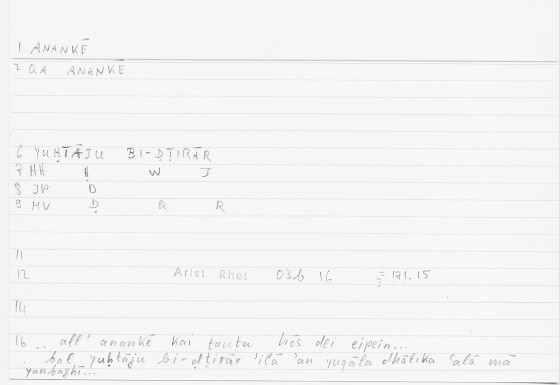 1 ANANKĒ
2 QA ANANKĒ
6 YUḤTĀJU BI-ḌṬIRĀR
7 HH Ḥ W J
8 JP D
9 MV Ḍ R R
11
12 Arist Rhet 03b 16 = 171.15
14
16 .. all' anankē kai tauta hōs dei eipein...
.. bal yuḥtāju bi-ḍṭirār 'ilā 'an yuqāla dhālika ʿalā mā
yanbaghī...